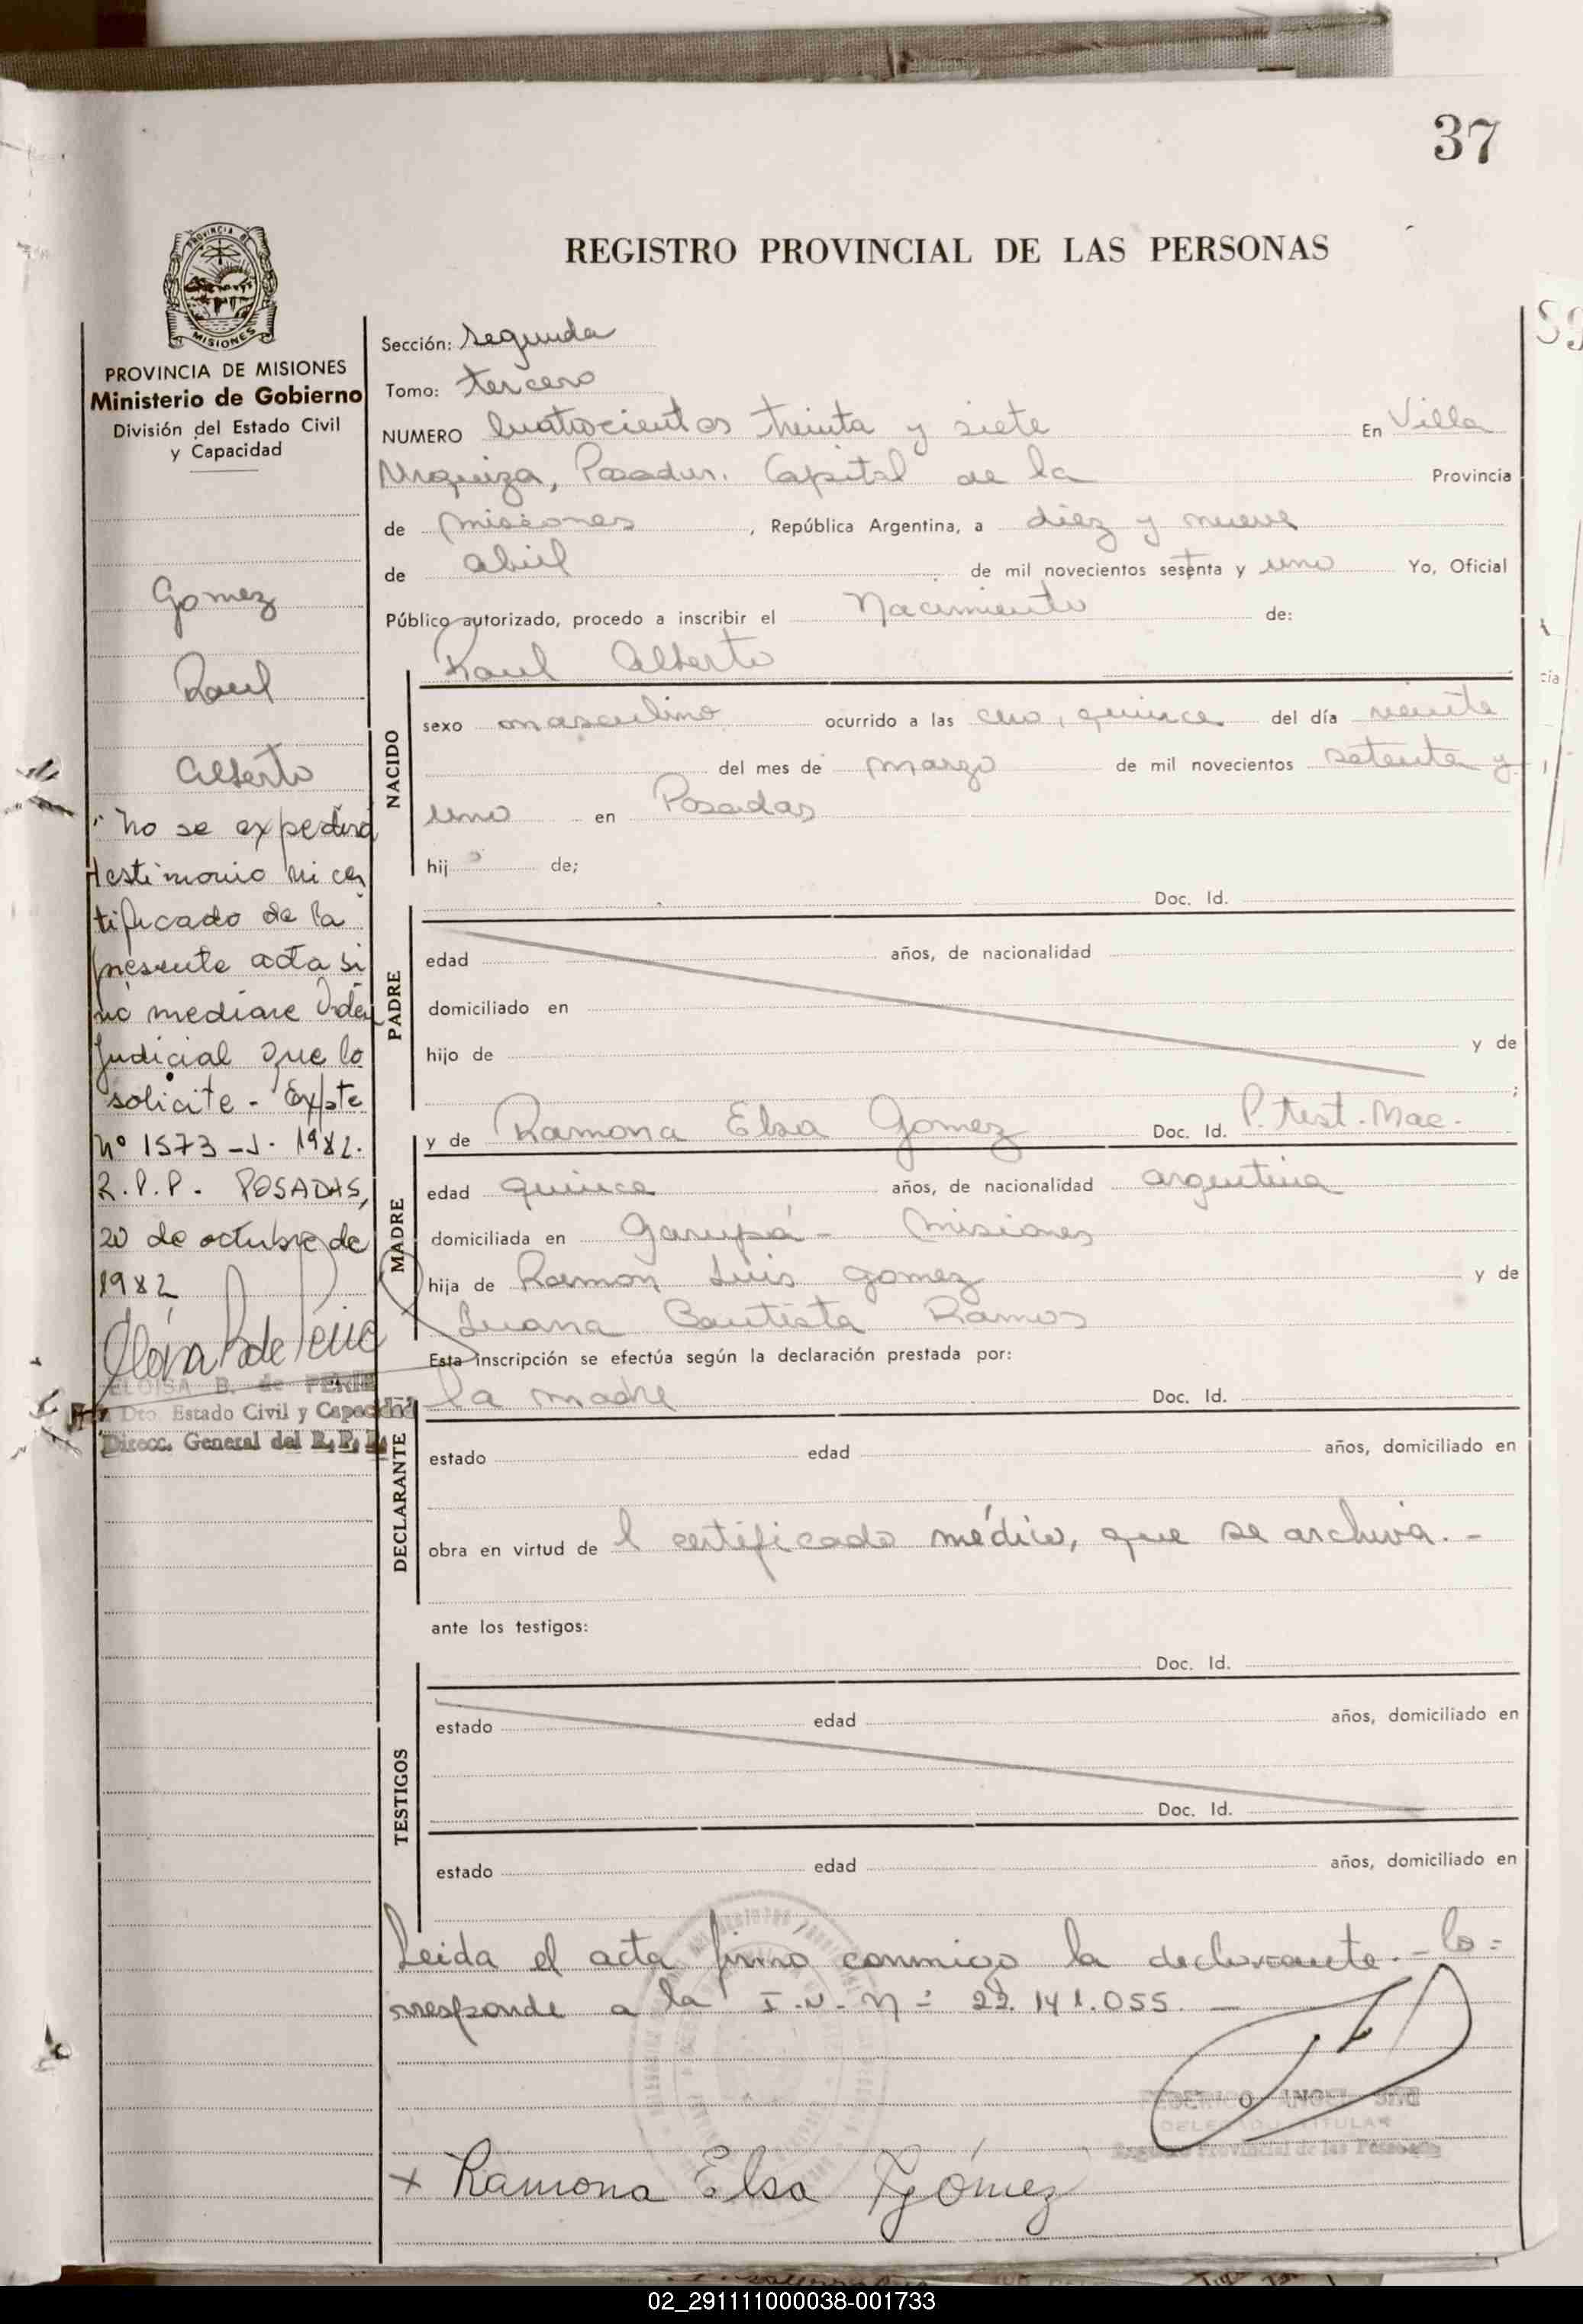 37
REGISTRO PROVINCIAL DE LAS PERSONAS
PROVINCIA DE
MISIONES
PROVINCIA DE MISIONES
Ministerio de Gobierno
División del Estado Civil
y Capacidad
Gomez
Raul
Alberto
"No se expedirá
testimonio ni cer
tificado de la
presente acta si
no mediare Orden
Judicial que lo
solicite - Expte
Nº 1573-J- 1982.
R.P.P. POSADAS,
20 de octubre de
1982
ELOISA B. de PERIE
Dto. Estado Civil y Capacidad
Direcc. General del R. P. P.
Sección: Segunda
Tomo: tercero
NUMERO Cuatrocientos treinta y siete En Villa
Urquiza, Posadas. Capital de la Provincia
de Misiones, República Argentina, a diez y nueve
de abril de mil novecientos sesenta y uno Yo, Oficial
Público autorizado, procedo a inscribir el Nacimiento de:
Raul Alberto
NACIDO
sexo masculino ocurrido a las quince del día veinte
del mes de marzo de mil novecientos setenta y
uno en Posadas
hijo de;
Doc. Id.
PADRE
edad años, de nacionalidad
domiciliado en
hijo de y de
;
y de Ramona Elsa Gomez Doc. Id. P. test. Nac.
MADRE
edad quince años, de nacionalidad argentina
domiciliada en Garupá - Misiones
hija de Ramon Luis Gomez y de
Juana Bautista Ramos
Esta inscripción se efectúa según la declaración prestada por:
la madre Doc. Id.
DECLARANTE
estado edad años, domiciliado en
obra en virtud de l certificado médico, que se archiva.-
ante los testigos:
Doc. Id.
TESTIGOS
estado edad años, domiciliado en
Doc. Id.
estado edad años, domiciliado en
Leida el acta firma conmigo la declarante.- Co=
rresponde a la I.N. Nº 22.141.055. —
FEDERICO ANGEL
DELEGADO TITULAR
Registro Provincial de las Personas
x Ramona Elsa Gómez
02_291111000038-001733